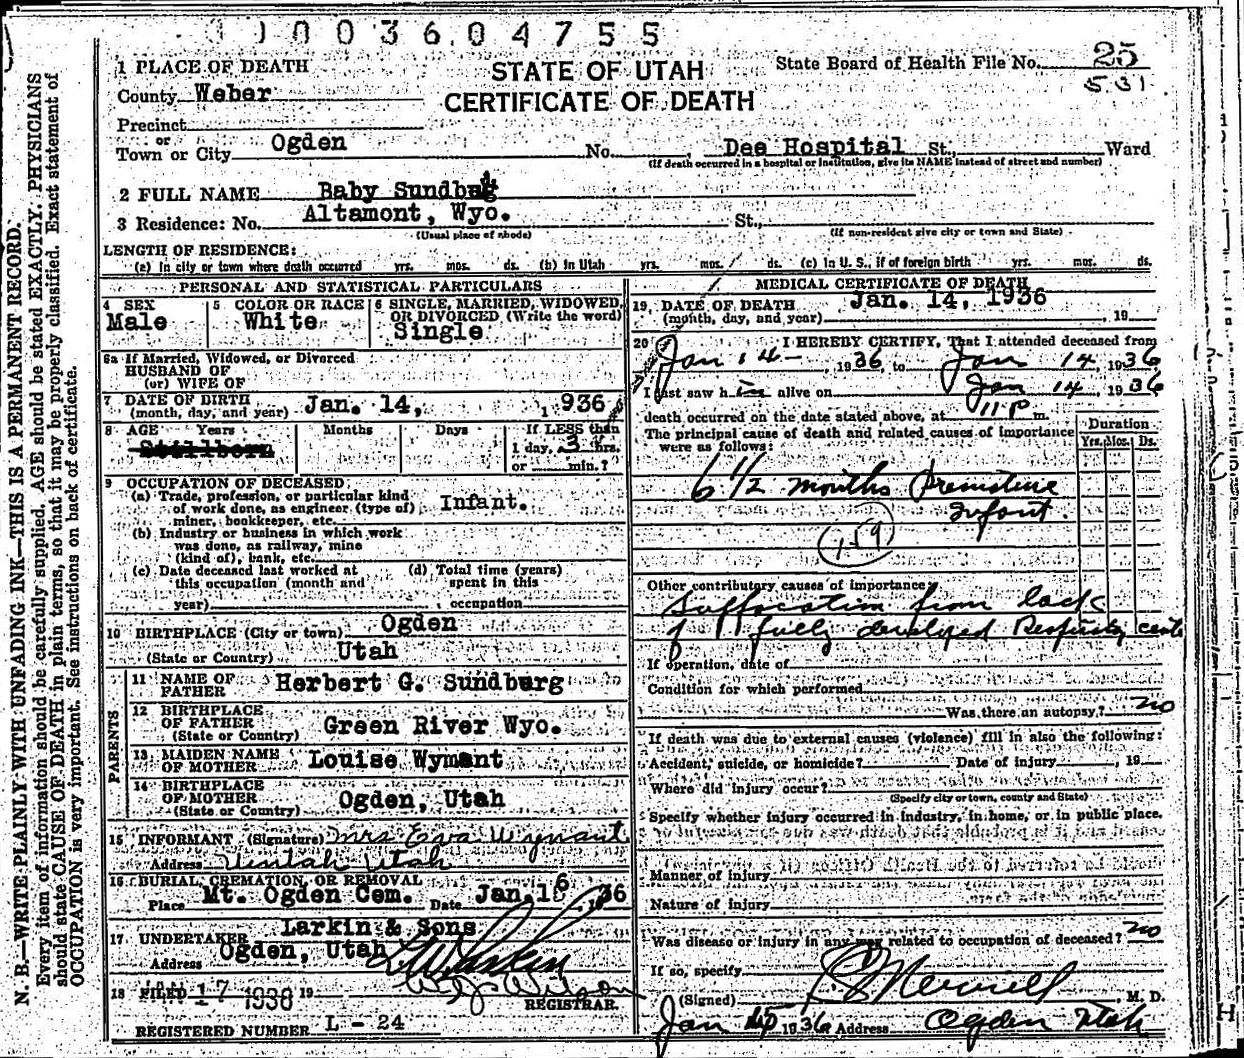 003604755
STATE OF UTAH
CERTIFICATE OF DEATH
State Board of Health File No. 25
531
1 PLACE OF DEATH
County Weber
Precinct
or
Town or City Ogden No. Dee Hospital St., Ward
(If death occurred in a hospital or institution, give its NAME instead of street and number)
2 FULL NAME Baby Sundb
3 Residence: No. Altamont, Wyo. St.,
(Usual place of abode) (If non-resident give city or town and State)
LENGTH OF RESIDENCE:
(a) In city or town where death occurred yrs. mos. ds. (b) In Utah yrs. mos. ds. (c) In U. S., if of foreign birth yrs. mos. ds.
PERSONAL AND STATISTICAL PARTICULARS
4 SEX
Male
5 COLOR OR RACE
White
6 SINGLE, MARRIED, WIDOWED,
OR DIVORCED (Write the word)
Single
6a If Married, Widowed, or Divorced
HUSBAND OF
(or) WIFE OF
7 DATE OF BIRTH
(month, day, and year) Jan. 14, 1936
8 AGE Years Months Days If LESS than
Stillborn 1 day, 3 hrs.
or min.?
9 OCCUPATION OF DECEASED
(a) Trade, profession, or particular kind
of work done, as engineer (type of) Infant.
miner, bookkeeper, etc.
(b) Industry or business in which work
was done, as railway, mine
(kind of), bank, etc.
(c) Date deceased last worked at (d) Total time (years)
this occupation (month and spent in this
year) occupation
10 BIRTHPLACE (City or town) Ogden
(State or Country) Utah
PARENTS
11 NAME OF
FATHER Herbert G. Sundburg
12 BIRTHPLACE
OF FATHER Green River Wyo.
(State or Country)
13 MAIDEN NAME
OF MOTHER Louise Wymant
14 BIRTHPLACE
OF MOTHER Ogden, Utah
(State or Country)
15 INFORMANT (Signature) Mrs Eva Wynant
Address Uintah Utah
16 BURIAL, CREMATION, OR REMOVAL
Place Mt. Ogden Cem. Date Jan. 16, 36
17 UNDERTAKER Larkin & Sons
Address Ogden, Utah
Larkin
18 FILED 17 1936 19
Wilson
REGISTRAR.
REGISTERED NUMBER L - 24
MEDICAL CERTIFICATE OF DEATH
19 DATE OF DEATH Jan. 14, 1936
(month, day, and year) , 19
20 I HEREBY CERTIFY, That I attended deceased from
Jan 14- , 1936, to Jan 14, 1936
I last saw h alive on Jan 14, 1936
death occurred on the date stated above, at 11 P m.
The principal cause of death and related causes of importance
were as follows:
Duration
Yrs. Mos. Ds.
6 1/2 months Premature
Infant.
(159)
Other contributary causes of importance:
Suffocation from lack
of fully developed Respiratory
If operation, date of
Condition for which performed
Was there an autopsy? no
If death was due to external causes (violence) fill in also the following:
Accident, suicide, or homicide? Date of injury , 19
Where did injury occur?
(Specify city or town, county and State)
Specify whether injury occurred in industry, in home, or in public place.
Manner of injury
Nature of injury
Was disease or injury in any way related to occupation of deceased? no
If so, specify
(Signed) Merrill , M. D.
Jan 15 1936 Address Ogden Utah
N. B.—WRITE PLAINLY WITH UNFADING INK—THIS IS A PERMANENT RECORD.
Every item of information should be carefully supplied. AGE should be stated EXACTLY. PHYSICIANS
should state CAUSE OF DEATH in plain terms, so that it may be properly classified. Exact statement of
OCCUPATION is very important. See instructions on back of certificate.
H